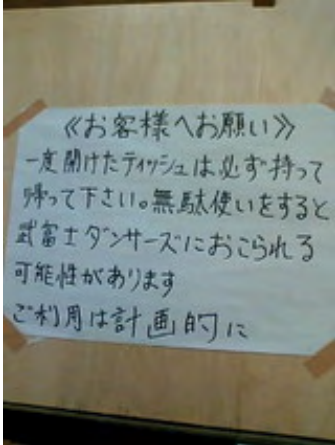 《お客様へお願い》
一度開けたティッシュは必ず持って
帰って下さい。無駄使いをすると
武富士ダンサーズにおこられる
可能性があります
ご利用は計画的に